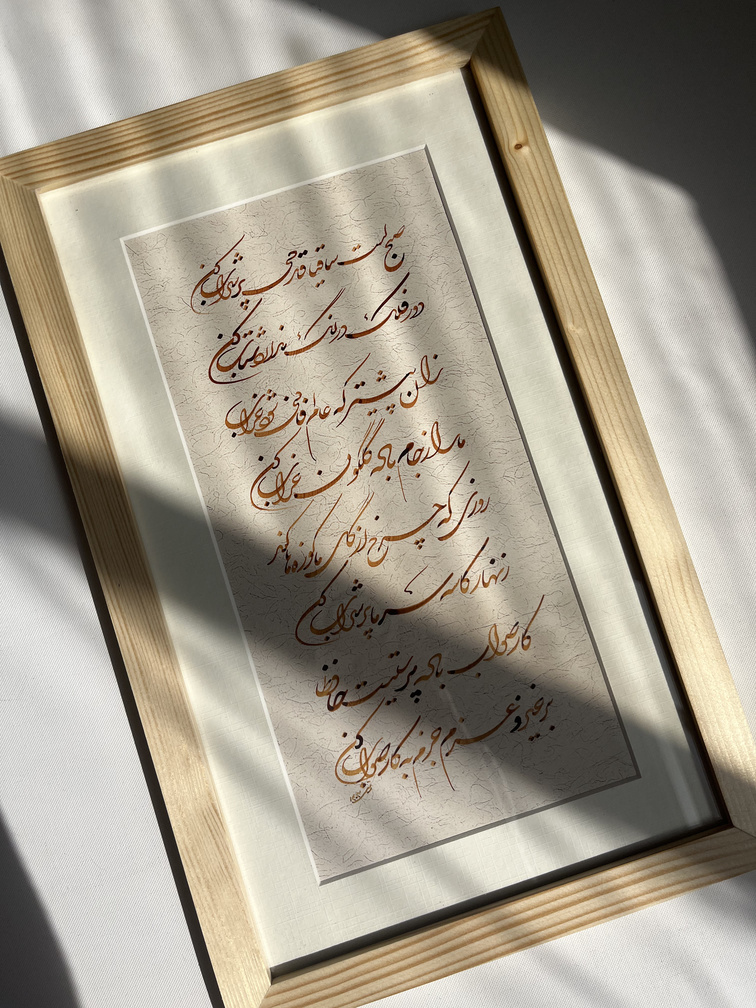 صبح است ساقیا قدحی پر شراب کن
دور فلک درنگ ندارد شتاب کن
زان پیشتر که عالم فانی شود خراب
ما را ز جام باده گلگون خراب کن
روزی که چرخ از گل ما کوزه ها کند
زنهار کاسه سر ما پر شراب کن
کار صواب باده پرستیست حافظا
برخیز و عزم جزم به کار صواب کن